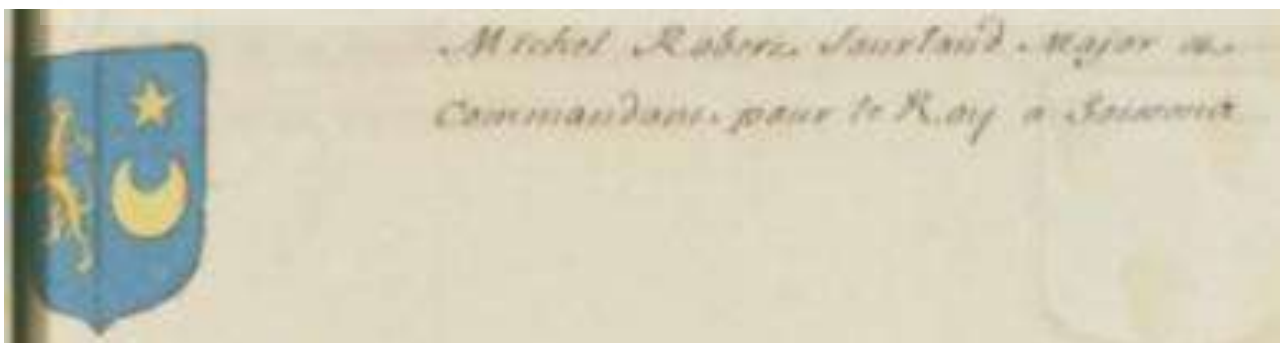 Michel Robert Sourland Major et
Commandant pour le Roy a Soissons